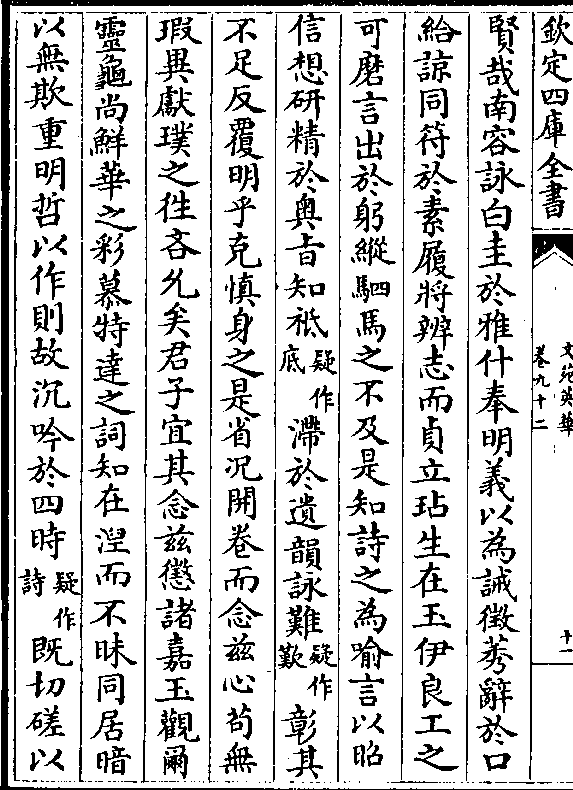 欽定四庫全書
文苑英華
卷九十二
十一
賢哉南容詠白圭於雅什奉明義以為誡徵莠辭於口
給諒同符於素履將辨志而貞立玷生在玉伊良工之
可磨言出於躬縱駟馬之不及是知詩之為喻言以昭
信想研精於奥㫖知祗疑作底滯於遺韻詠難疑作歎彰其
不足反覆明乎克慎身之是省況開卷而念兹心苟無
瑕異獻璞之徃吝允矣君子宜其念兹懲諸嘉玉觀爾
靈龜尚鮮華之彩慕特達之詞知在涅而不昧同居暗
以無欺重明哲以作則故沉吟於四時疑作詩既切磋以